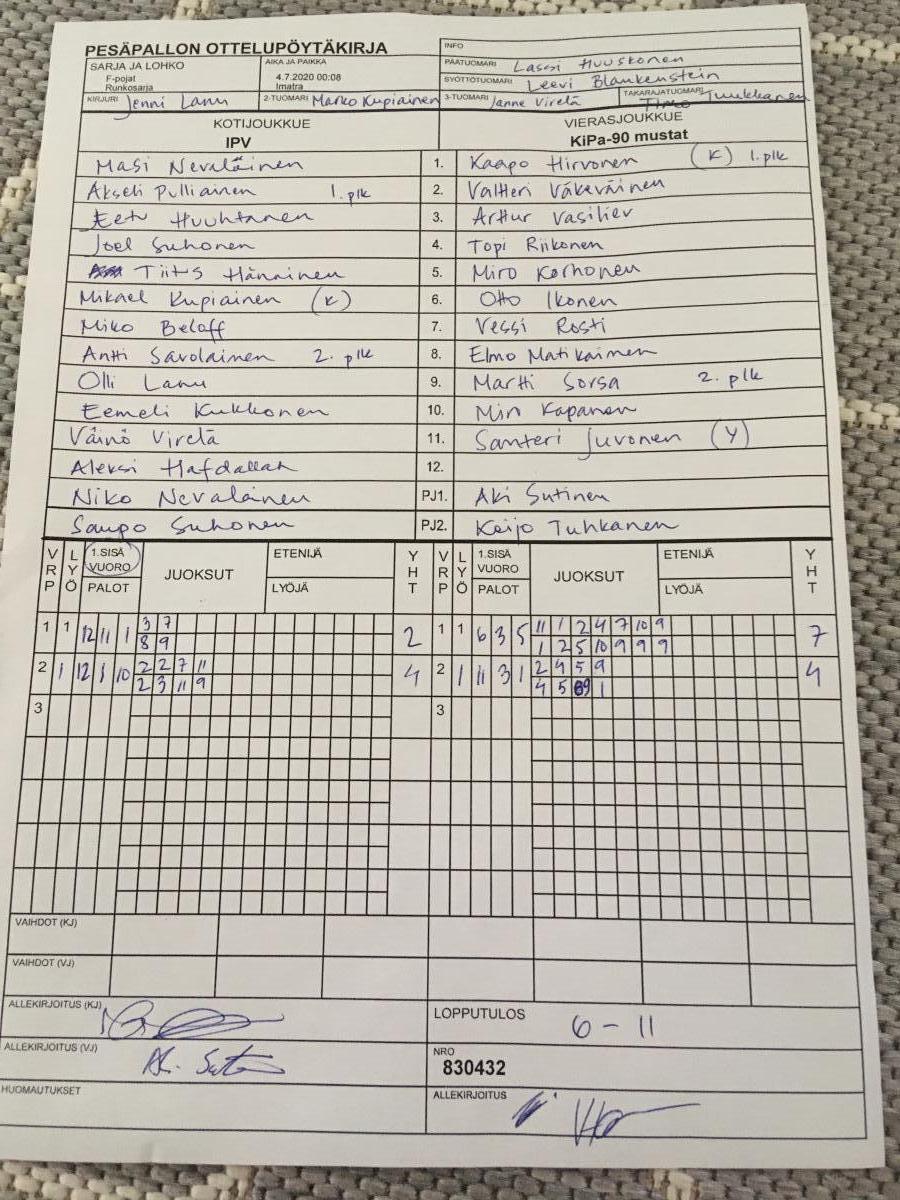 PESÄPALLON OTTELUPÖYTÄKIRJA
INFO
SARJA JA LOHKO
F-pojat
Runkosarja
AIKA JA PAIKKA
4.7.2020 00:08
Imatra
PÄÄTUOMARI Lassi Huuskonen
SYÖTTÖTUOMARI Leevi Blankenstein
KIRJURI Jenni Lanu
2-TUOMARI Marko Kupiainen
3-TUOMARI Janne Virelä
TAKARAJATUOMARI Timo Tuukkanen
KOTIJOUKKUE
IPV
VIERASJOUKKUE
KiPa-90 mustat
Masi Neva­läinen 1. Kaapo Hirvonen (K) 1.plk
Akseli Pulliainen 1.plk 2. Valtteri Väkeväinen
Eetu Huuhtanen 3. Arttur Vasiliev
Joel Suhonen 4. Topi Riikonen
Tiitus Hänninen 5. Miro Korhonen
Mikael Kupiainen (K) 6. Otto Ikonen
Miko Beloff 7. Vessi Rosti
Antti Savolainen 2. plk 8. Elmo Matikainen
Olli Lanu 9. Martti Sorsa 2. plk
Eemeli Kukkonen 10. Miro Kapanen
Väinö Virelä 11. Santeri Juvonen (Y)
Aleksi Hafdallah 12.
Niko Nevalainen PJ1. Aki Sutinen
Sampo Suhonen PJ2. Keijo Tuhkanen
VRP LYÖ 1.SISÄ VUORO PALOT JUOKSUT ETENIJÄ LYÖJÄ YHT VRP LYÖ 1.SISÄ VUORO PALOT JUOKSUT ETENIJÄ LYÖJÄ YHT
1 1 12 11 1 3 7 2 1 1 6 3 5 11 1 2 4 7 10 9 7
8 9 1 2 5 10 9 9 9
2 1 12 1 10 2 2 7 11 4 2 1 11 3 1 2 4 5 9 4
2 3 11 9 4 5 9 1
3 3
VAIHDOT (KJ)
VAIHDOT (VJ)
ALLEKIRJOITUS (KJ)
LOPPUTULOS 6 - 11
ALLEKIRJOITUS (VJ)
NRO
830432
HUOMAUTUKSET
ALLEKIRJOITUS